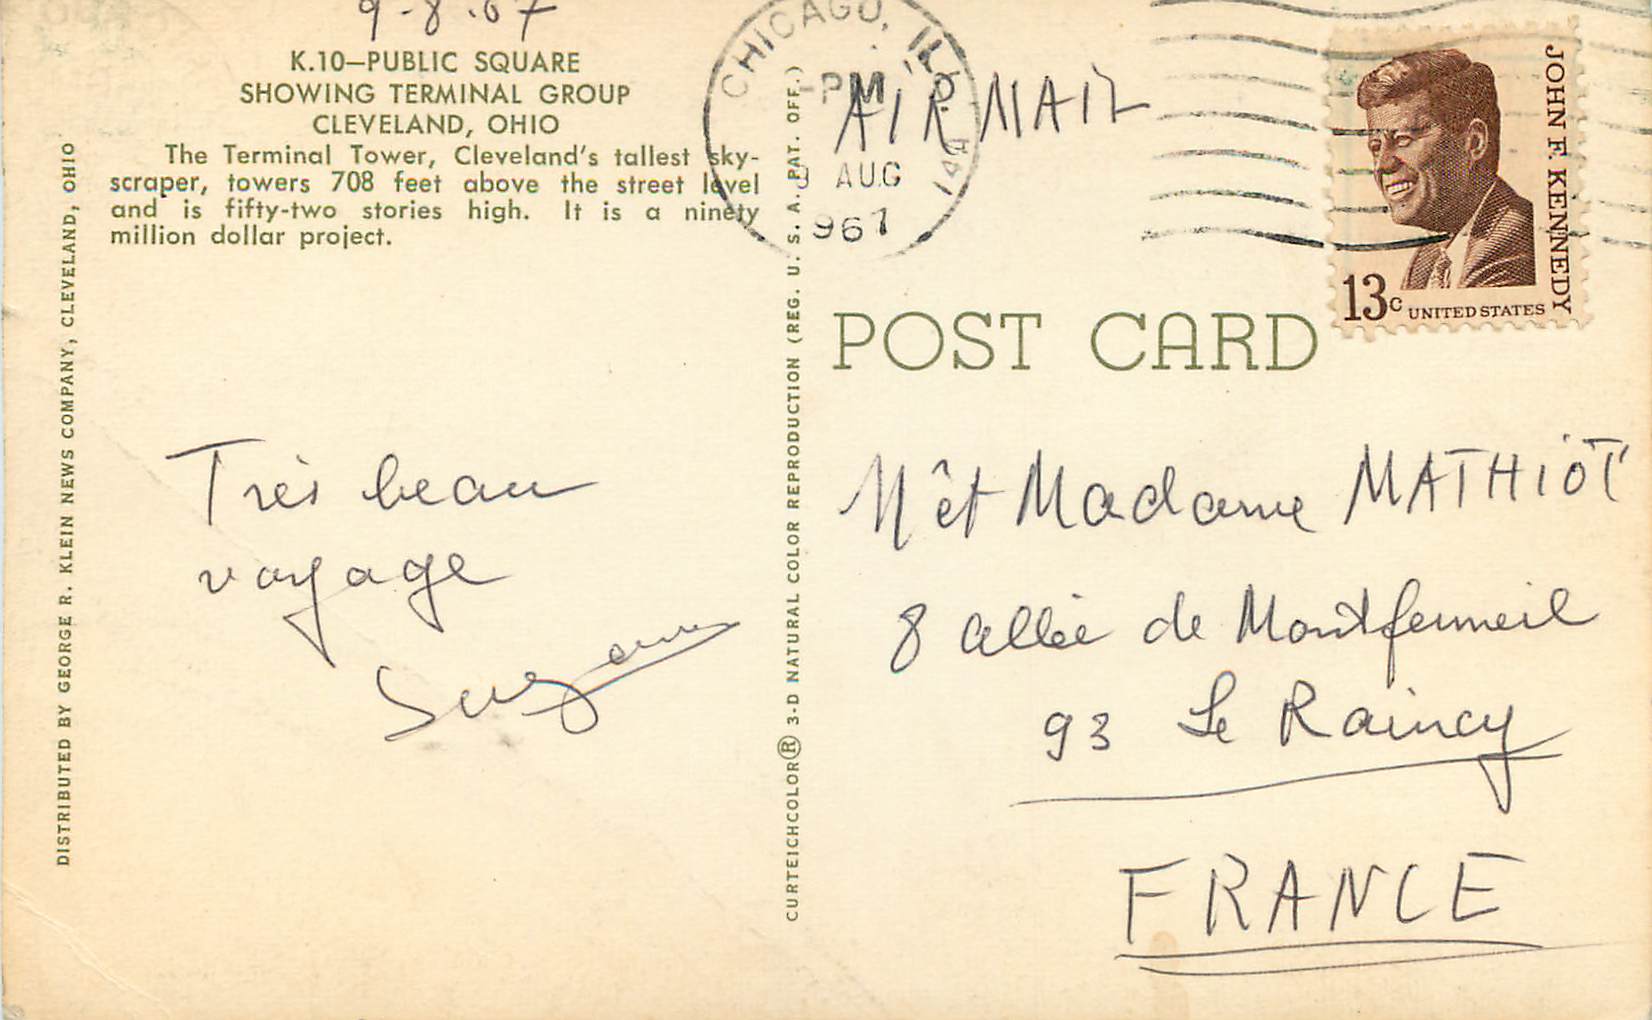 9-8.67
K.10—PUBLIC SQUARE
SHOWING TERMINAL GROUP
CLEVELAND, OHIO
The Terminal Tower, Cleveland's tallest sky-
scraper, towers 708 feet above the street level
and is fifty-two stories high. It is a ninety
million dollar project.
DISTRIBUTED BY GEORGE R. KLEIN NEWS COMPANY, CLEVELAND, OHIO
Très beau
voyage
Suzanne
CURTEICHCOLOR® 3-D NATURAL COLOR REPRODUCTION (REG. U. S. A. PAT. OFF.)
CHICAGO, ILL.
PM
AUG
967
AIR MAIL
JOHN F. KENNEDY
13c UNITED STATES
POST CARD
M et Madame MATHIOT
8 allée de Montfermeil
93 Le Raincy
FRANCE